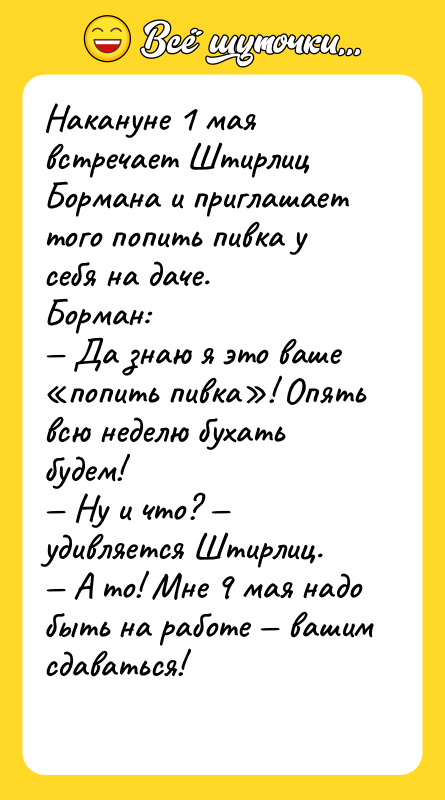 Всё шуточки...
Накануне 1 мая
встречает Штирлиц
Бормана и приглашает
того попить пивка у
себя на даче.
Борман:
— Да знаю я это ваше
«попить пивка»! Опять
всю неделю бухать
будем!
— Ну и что? —
удивляется Штирлиц.
— А то! Мне 9 мая надо
быть на работе — вашим
сдаваться!